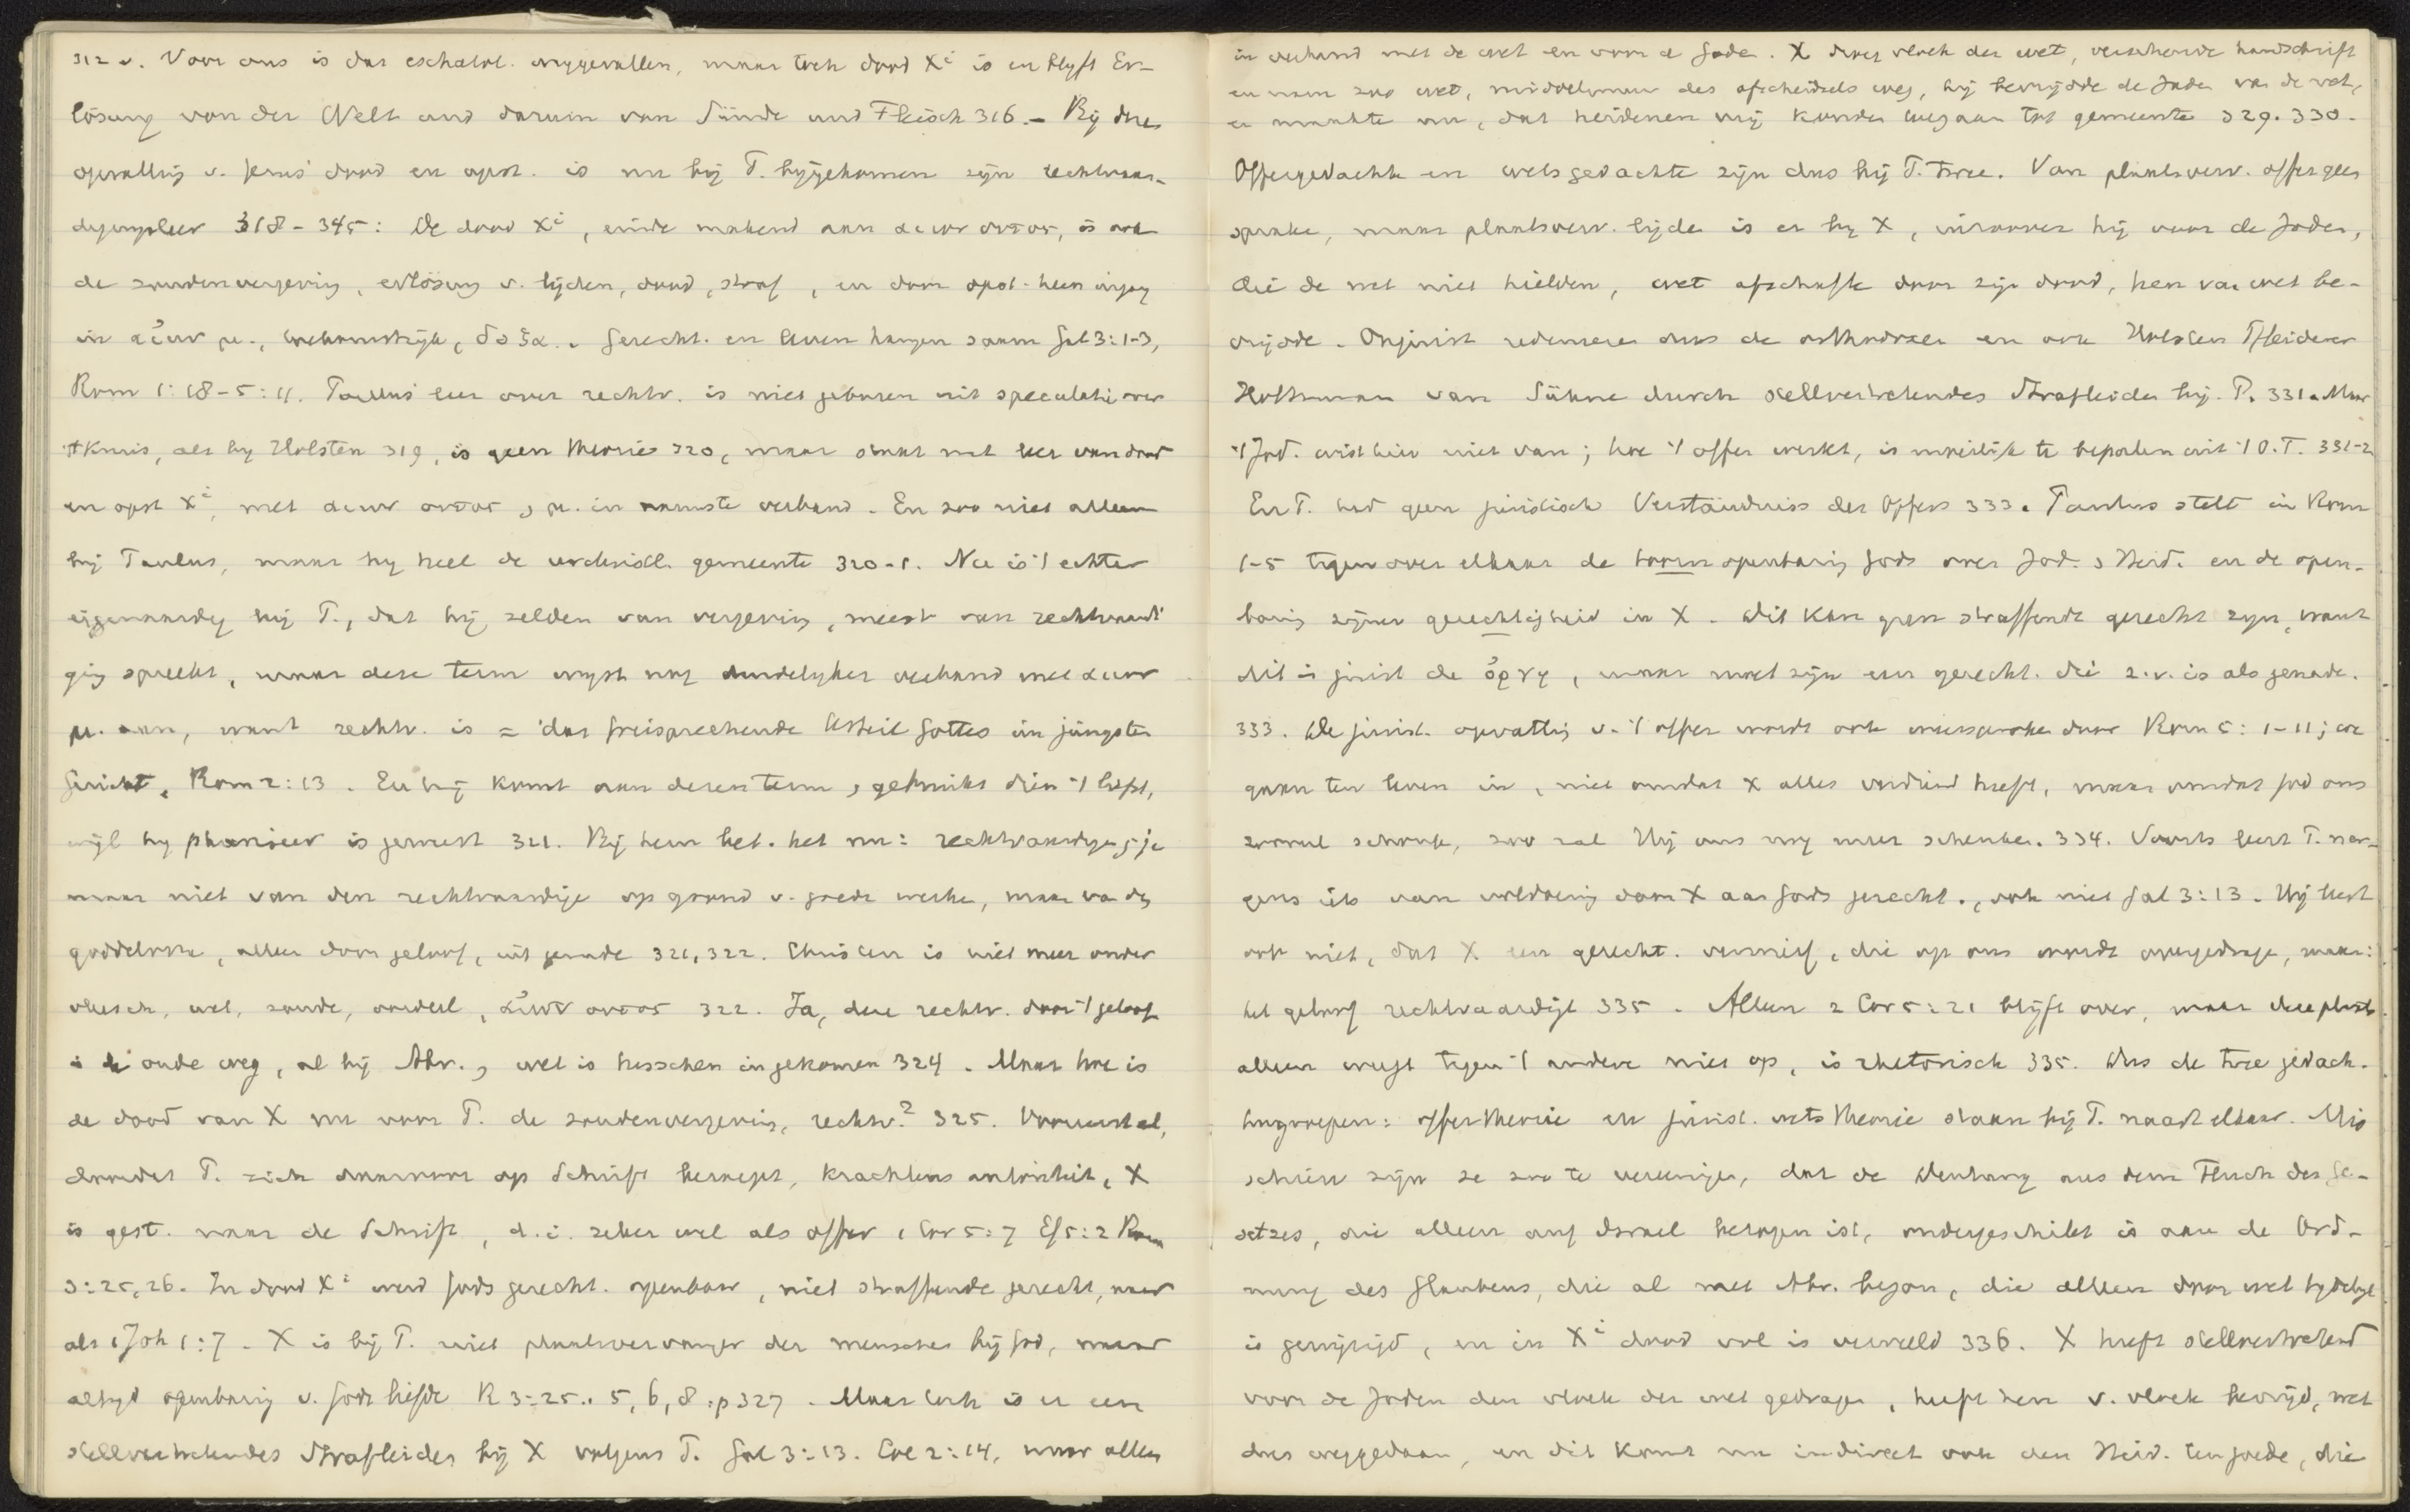 312 v. Voor ons is dus eschatol. weggevallen, maar toch dood Xi is en blyft Er-
lösung von der Welt und darum von Sünde und Fleisch 316. – Bij deze
opvatting v. Jezus' dood en opst. is nu bij P. bygekomen zyn rechtvaar-
digingsleer 318 – 345: De dood Xi, einde makend aan αιων ουτος, is ook
de zondenvergeving, erlösung v. lijden, dood, straf, en door opst. heen ingang
in αἰων μ., heerlijk, δοξα. Gerecht. en leven hangen saam Gal 3:1-3,
Rom 1:18 – 5:11. Paulus' leer over rechtv. is niet geboren uit speculatie over
't Kruis, als by Holsten 319, is geen theorie 320, maar staat met leer van dood
en opst Xi, met αιων ουτος, μ. in nauwste verband. En zoo niet alleen
bij Paulus, maar by heel de urchristl. gemeente 320-1. Nu is 't echter
eigenaardig bij P., dat hij zelden van vergeving, meest van rechtvaardi-
ging spreekt, maar deze term wyst nog duidelyker verband met αιων
μ. aan, want rechtv. is = das freisprechende Urteil Gottes im jüngsten
Gericht, Rom 2:13. En hij komt aan dezen term, gebruikt dien 't liefst,
wijl hy phariseer is geweest 321. Bij hem bet. het nu: rechtvaardigen, ja
maar niet van den rechtvaardige op grond v. goede werken, maar van den
goddelooze, alleen door geloof, uit genade 321, 322. Christen is niet meer onder
vleesch, wet, zonde, oordeel, αἰων ουτος 322. Ja, deze rechtv. door 't geloof
is de oude weg, al bij Abr., wet is tusschen ingekomen 324. Maar hoe is
de dood van X nu voor P. de zondenvergeving, rechtv.? 325. Vooreerst al,
doordat P. zich daarvoor op Schrift beroept, krachtens autoriteit, X
is gest. naar de Schrift, d.i. zeker wel als offer 1 Cor 5:7 Ef 5:2 Rom
3:25, 26. In dood Xi werd Gods gerecht. openbaar, niet straffende gerecht, maar
als 1 Joh 1:7. X is bij P. niet plaatsvervanger der menschen bij God, maar
altyd openbaring v. Gods liefde R 3:25.. 5, 6, 8 :p 327. Maar toch is er een
stellvertretendes Strafleiden bij X volgens P. Gal 3:13. Col 2:14, maar alleen
in verband met de wet en voor de Joden. X droeg vloek der wet, verscheurde handschrift
en nam zoo wet, middelmuur des afscheidsels weg, hij bevrijdde de Joden van de wet,
en maakte nu, dat heidenen vrij konden ingaan tot gemeente 329. 330.
Offergedachte en wetsgedachte zijn dus bij P. twee. Van plaatsverv. offer geen
sprake, maar plaatsverv. lijden is er by X, inzoover hij voor de Joden,
die de wet niet hielden, wet afschafte door zijn dood, hen van wet be-
vrijdde. Onjuist redeneren dus de orthodoxen en ook Holsten Pfleiderer
Holtzmann van Sühne durch stellvertretendes Strafleiden bij P. 331. Maar
't Jod. wist hier niet van; hoe 't offer werkt, is moeilijk te bepalen uit 't O.T. 331-2
En P. had geen juridisch Verständniss des Opfers 333. Paulus stelt in Rom
1-5 tegenover elkaar de toornopenbaring Gods over Jod. & Heid. en de open-
baring zijner gerechtigheid in X. Dit kan geen straffende gerecht zyn, want
dit is juist de ὀργη, maar moet zijn een gerecht. die z.v. is als genade.
333. De jurist. opvatting v. 't offer wordt ook weersproken door Rom 5: 1-11; we
gaan ten leven in, niet omdat X alles verdiend heeft, maar omdat God ons
zooveel schonk, zoo zal Hij ons nog meer schenken. 334. Voorts leert P. ner-
gens iets van voldoening door X aan Gods gerecht., ook niet Gal 3:13. Hij leert
ook niet, dat X een gerecht. verwierf, die op ons wordt overgedragen, maar:
het geloof rechtvaardigt 335. Alleen 2 Cor 5:21 blijft over, maar deze plaats
alleen weegt tegen 't andere niet op, is rhetorisch 335. Dus de twee gedach-
tengroepen: offertheorie en jurist. wetstheorie staan bij P. naast elkaar. Mis
schien zijn ze zoo te vereenigen, dat de Wendung aus dem Fluch des Ge-
setzes, die alleen auf Israel bezogen ist, ondergeschikt is aan de Ord-
nung des Glaubens, die al met Abr. begon, die alleen door wet tydelyk
is gewijzigd, en in Xi dood vol is vervuld 336. X heeft stellvertretend
voor de Joden den vloek der wet gedragen, heeft hen v. vloek bevrijd, wet
dus weggedaan, en dit komt nu indirect ook den Heid. ten goede, die